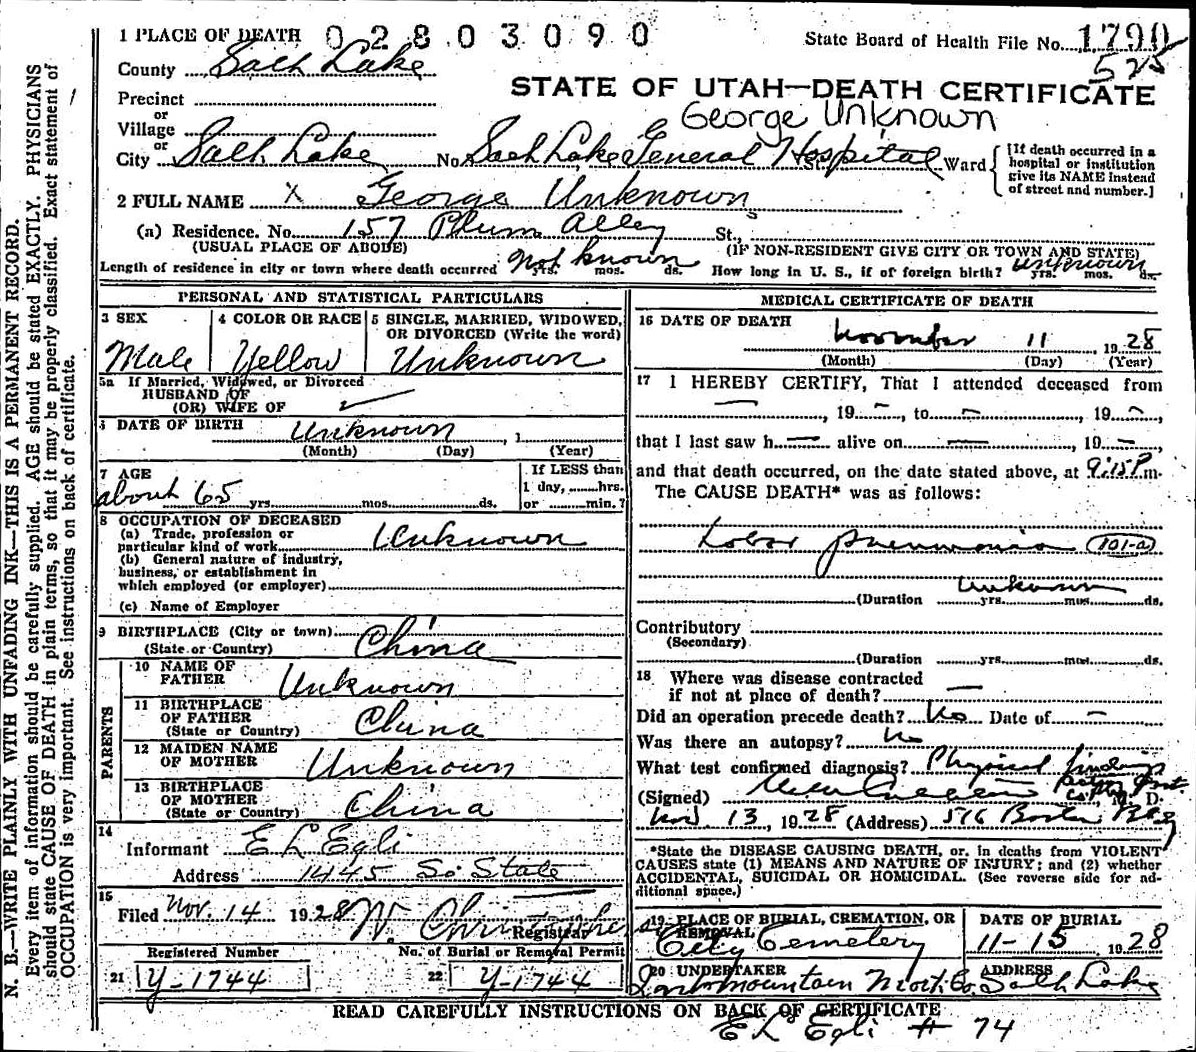 1 PLACE OF DEATH 0 2 8 0 3 0 9 0 State Board of Health File No. 1790
County Salt Lake 525
STATE OF UTAH—DEATH CERTIFICATE
Precinct George Unknown
or
Village
or
City Salt Lake No Salt Lake General Hospital St. Ward {[If death occurred in a hospital or institution give its NAME instead of street and number.]
2 FULL NAME X George Unknown
(a) Residence. No. 157 Plum Alley St.,
(USUAL PLACE OF ABODE) (IF NON-RESIDENT GIVE CITY OR TOWN AND STATE)
Length of residence in city or town where death occurred Not known yrs. mos. ds. How long in U. S., if of foreign birth? Unknown yrs. mos. ds.
PERSONAL AND STATISTICAL PARTICULARS
3 SEX 4 COLOR OR RACE 5 SINGLE, MARRIED, WIDOWED,
OR DIVORCED (Write the word)
Male Yellow Unknown
5a If Married, Widowed, or Divorced
HUSBAND OF
(OR) WIFE OF
6 DATE OF BIRTH Unknown , 1
(Month) (Day) (Year)
7 AGE If LESS than
about 65 yrs. mos. ds. 1 day, hrs.
or min.?
8 OCCUPATION OF DECEASED
(a) Trade, profession or
particular kind of work Unknown
(b) General nature of industry,
business, or establishment in
which employed (or employer)
(c) Name of Employer
9 BIRTHPLACE (City or town)
(State or Country) China
PARENTS
10 NAME OF
FATHER Unknown
11 BIRTHPLACE
OF FATHER
(State or Country) China
12 MAIDEN NAME
OF MOTHER Unknown
13 BIRTHPLACE
OF MOTHER
(State or Country) China
14
Informant E L Egli
Address 1445 So. State
15
Filed Nov. 14 1928 Registrar
Registered Number No. of Burial or Removal Permit
21 Y-1744 22 Y-1744
MEDICAL CERTIFICATE OF DEATH
16 DATE OF DEATH
November 11 1928
(Month) (Day) (Year)
17 I HEREBY CERTIFY, That I attended deceased from
— , 19 — , to — , 19 — ,
that I last saw h — alive on — , 19 —
and that death occurred, on the date stated above, at 9:15 P m.
The CAUSE DEATH* was as follows:
Lobar pneumonia 101-a
Unknown
(Duration yrs. mos. ds.
Contributory
(Secondary)
(Duration yrs. mos. ds.
18 Where was disease contracted
if not at place of death? —
Did an operation precede death? No Date of —
Was there an autopsy? No
What test confirmed diagnosis? Physical findings
(Signed) M. D.
Nov. 13, 1928 (Address) 516 Boston Bldg
*State the DISEASE CAUSING DEATH, or, in deaths from VIOLENT
CAUSES state (1) MEANS AND NATURE OF INJURY; and (2) whether
ACCIDENTAL, SUICIDAL OR HOMICIDAL. (See reverse side for ad-
ditional space.)
19 PLACE OF BURIAL, CREMATION, OR DATE OF BURIAL
REMOVAL
City Cemetery 11-15 1928
20 UNDERTAKER ADDRESS
Intermountain Mort. Co. Salt Lake
READ CAREFULLY INSTRUCTIONS ON BACK OF CERTIFICATE
E L Egli # 74
N. B.—WRITE PLAINLY WITH UNFADING INK—THIS IS A PERMANENT RECORD.
Every item of information should be carefully supplied. AGE should be stated EXACTLY. PHYSICIANS
should state CAUSE OF DEATH in plain terms, so that it may be properly classified. Exact statement of
OCCUPATION is very important. See instructions on back of certificate.